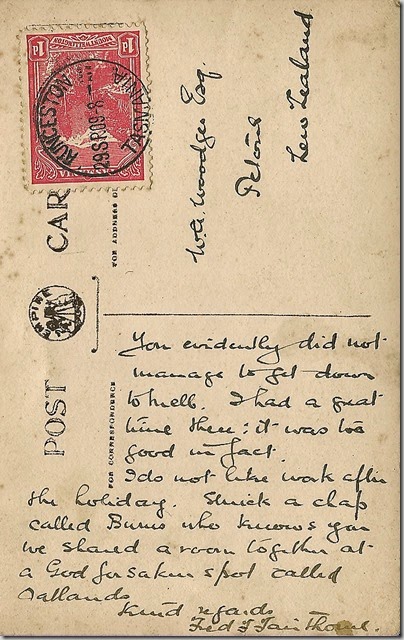 1D
1D
MOUNT WELLINGTON
LAUNCESTON
29 SP 09-8
TASMANIA
POST CAR
FOR ADDRESS O
EMPIRE
FOR CORRESPONDENCE
W.A. Woodger Esq.
Petone
New Zealand
You evidently did not
manage to get down
to Melb. I had a great
time there: it was too
good in fact.
I do not like work after
the holiday. Struck a chap
called Burns who knows you
we shared a room together at
a God forsaken spot called
Oatlands
Kind regards
Fred F Fairthorne.